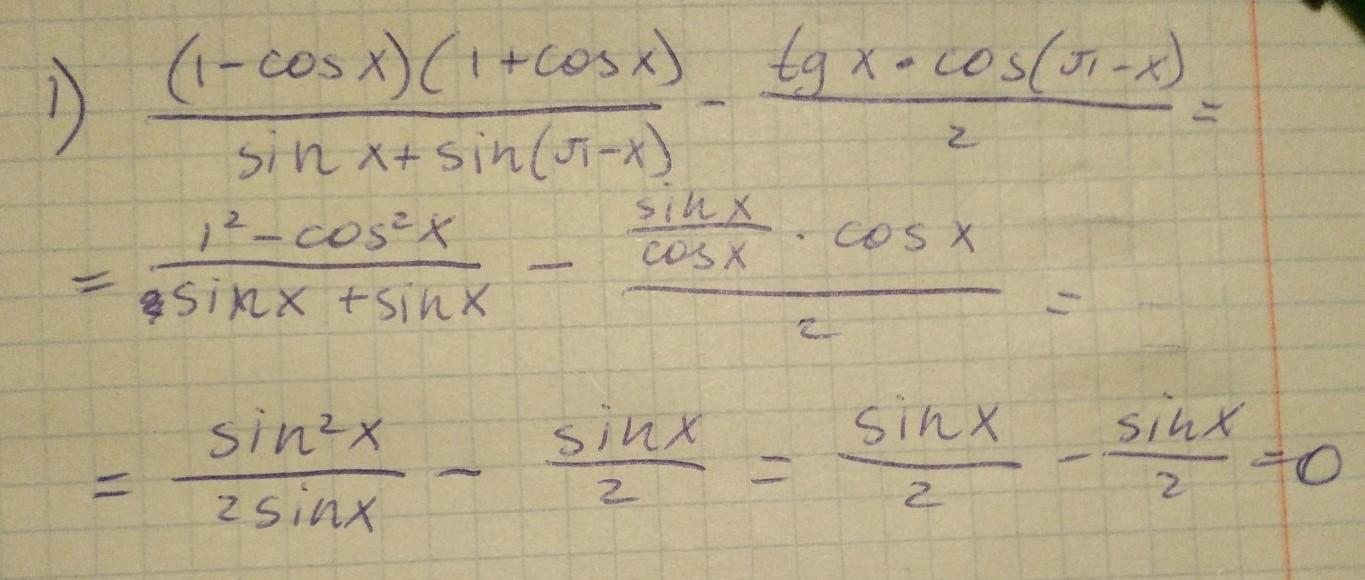 1) (1-cosx)(1+cosx) / sinx+sin(π-x) - tgx·cos(π-x) / 2 =
= 1²-cos²x / sinx+sinx - sinx/cosx · cosx / 2 =
= sin²x / 2sinx - sinx / 2 = sinx / 2 - sinx / 2 = 0